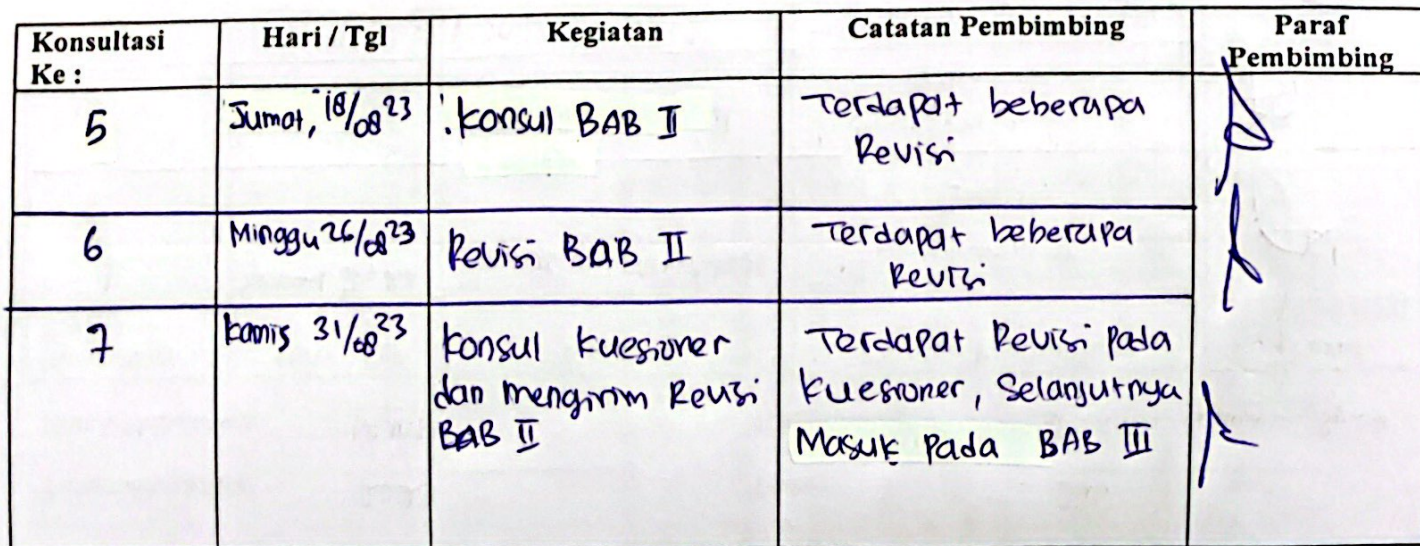 Konsultasi Ke :
Hari / Tgl
Kegiatan
Catatan Pembimbing
Paraf Pembimbing
5
Jumat, 18/08 23
konsul BAB II
Terdapat beberapa
Revisi
6
Minggu 26/08 23
Revisi BAB II
Terdapat beberapa
Revisi
7
Kamis 31/08 23
Konsul Kuesioner
dan mengirim Revisi
BAB II
Terdapat Revisi pada
Kuesioner, Selanjutnya
Masuk pada BAB III